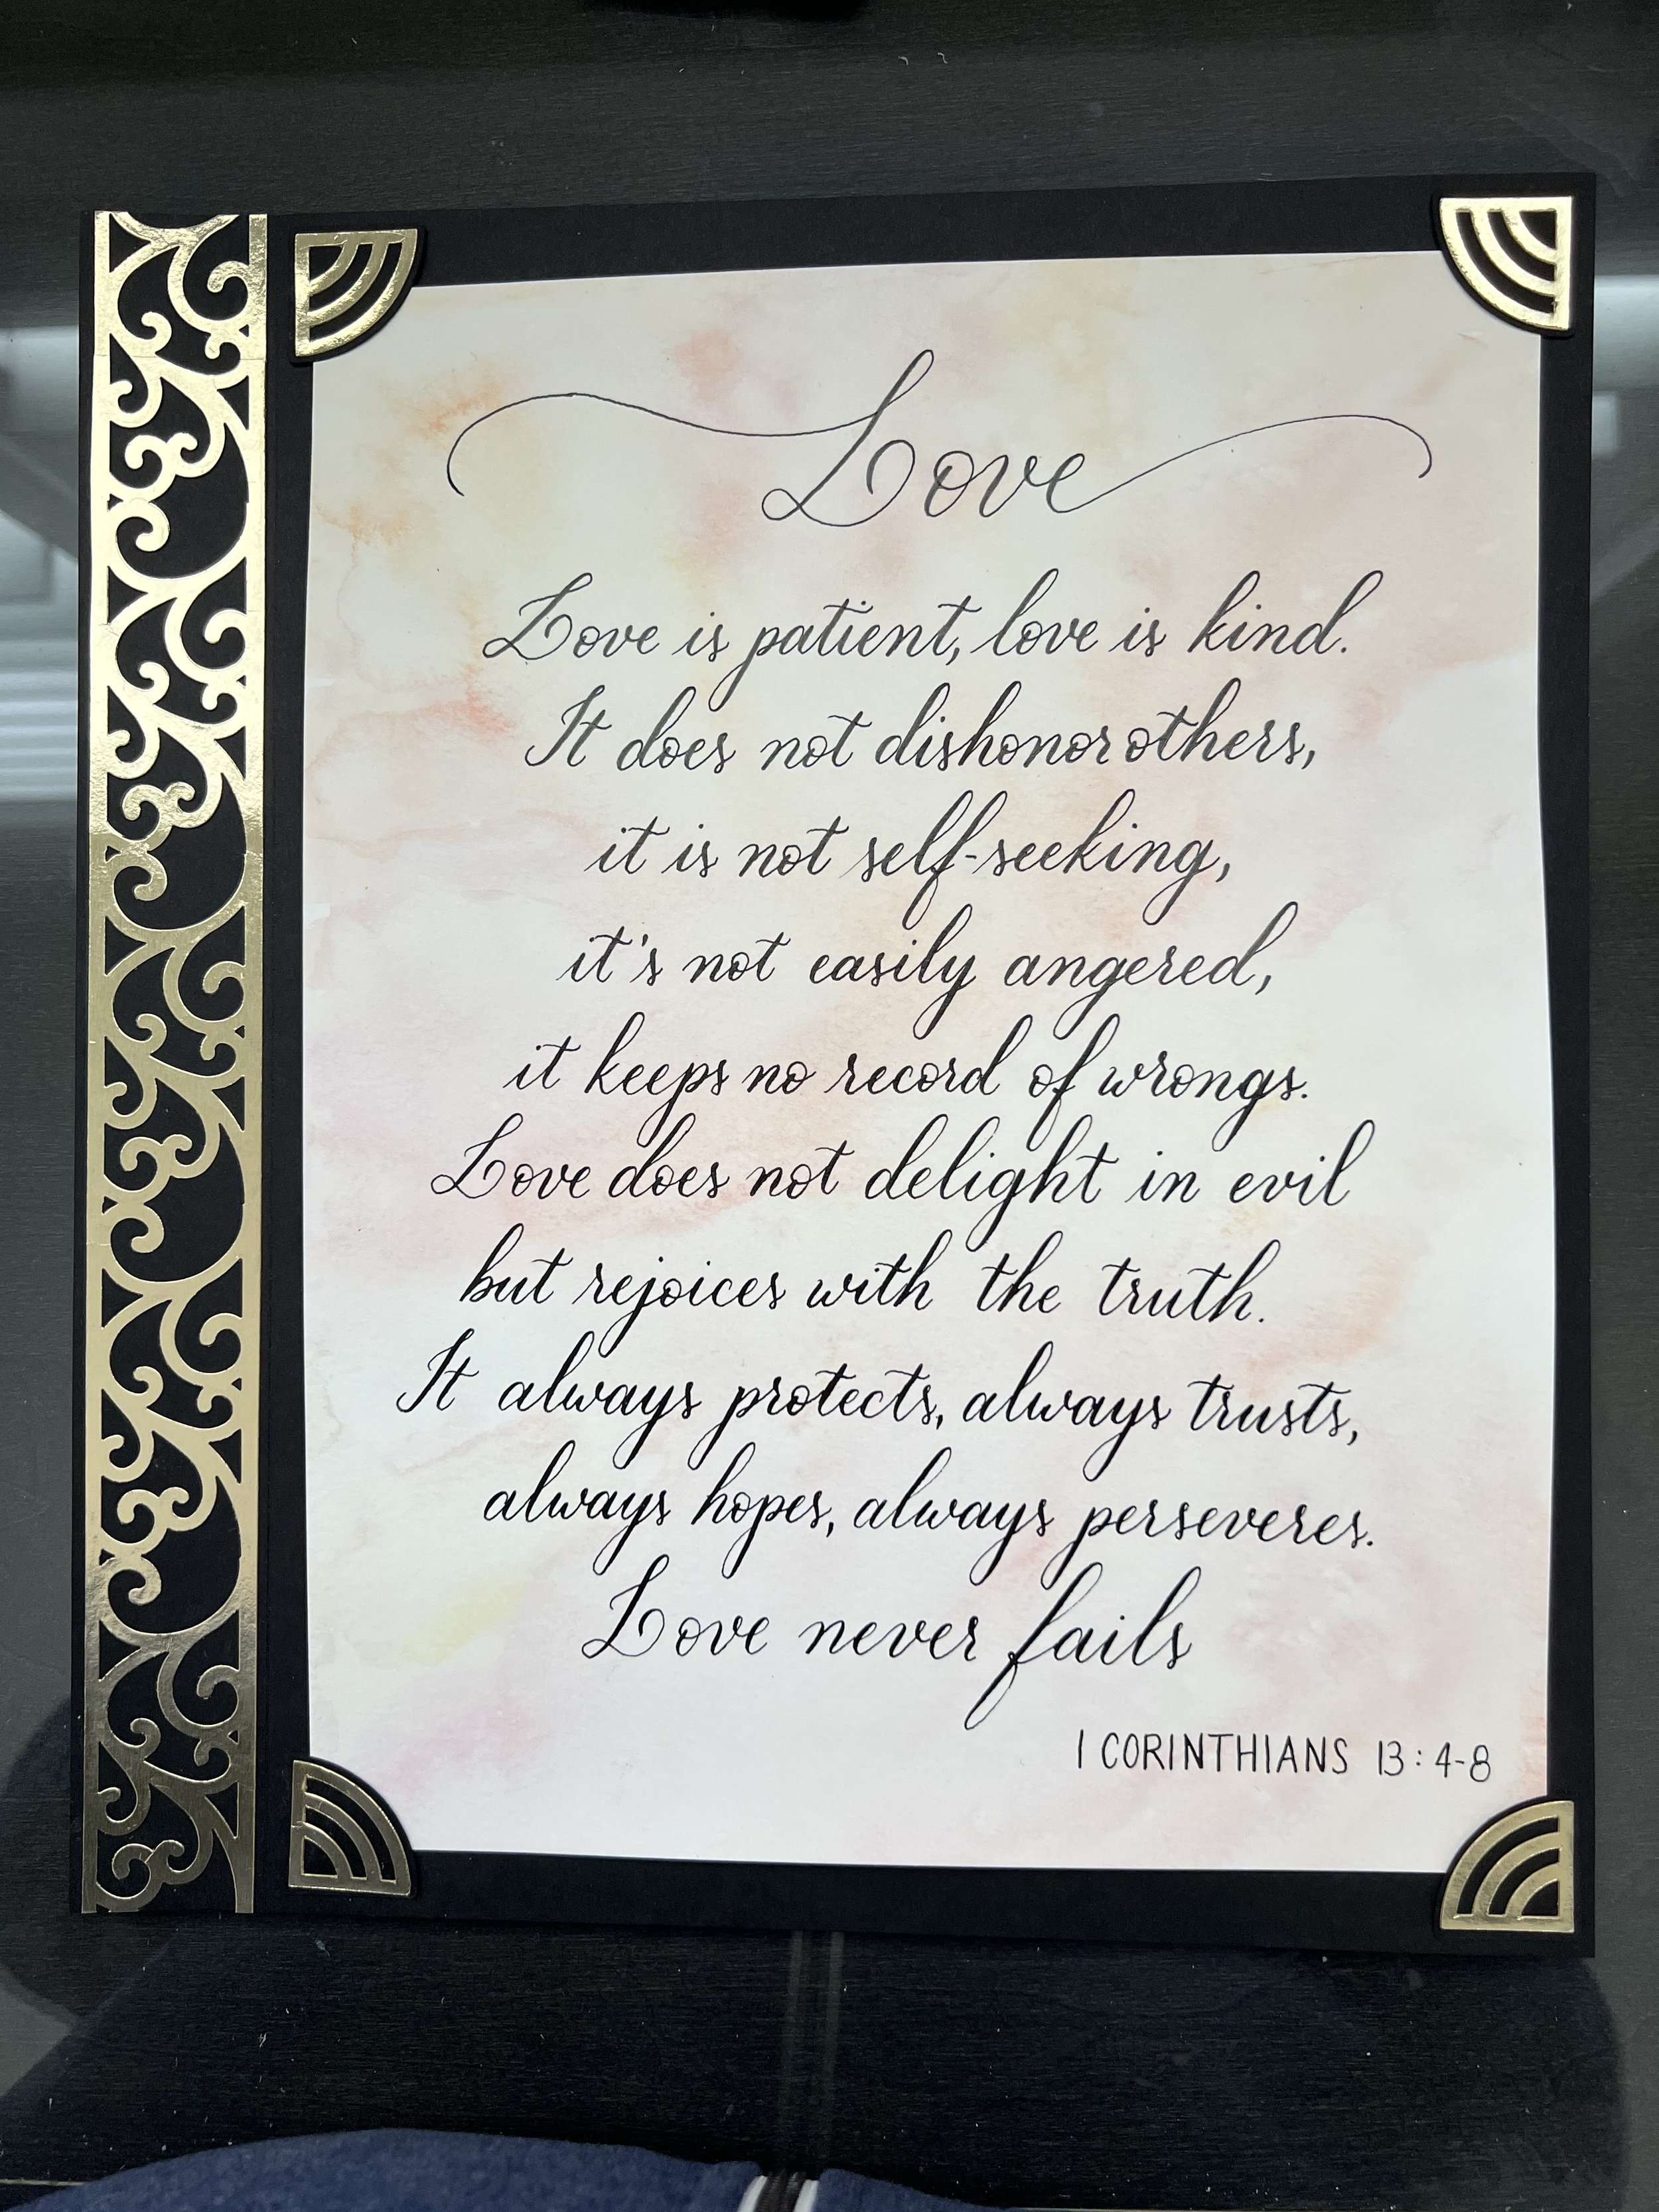 Love
Love is patient, love is kind.
It does not dishonor others,
it is not self-seeking,
it's not easily angered,
it keeps no record of wrongs.
Love does not delight in evil
but rejoices with the truth.
It always protects, always trusts,
always hopes, always perseveres.
Love never fails
1 CORINTHIANS 13:4-8